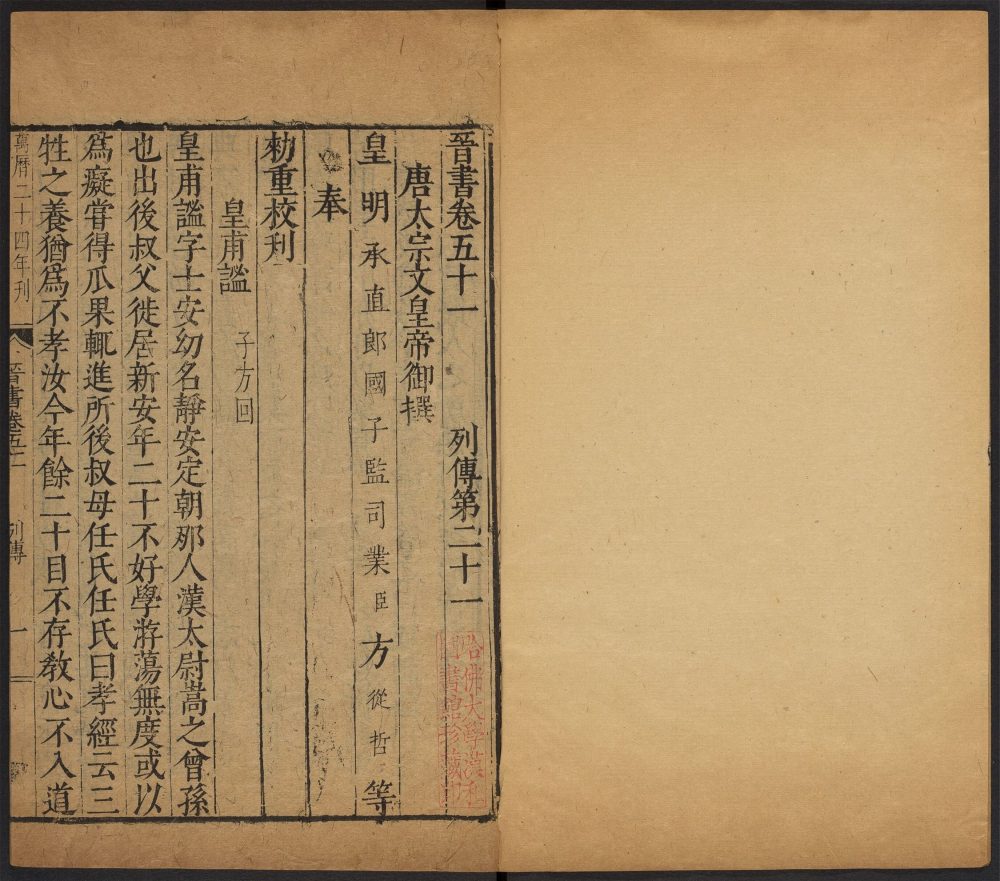 晉書卷五十一 列傳第二十一
唐太宗文皇帝御撰
皇明承直郎國子監司業臣方從哲等
奉
勑重校刋
皇甫謐 子方回
皇甫謐字士安幼名靜安定朝那人漢太尉嵩之曾孫
也出後叔父徙居新安年二十不好學游蕩無度或以
爲癡嘗得瓜果輒進所後叔母任氏任氏曰孝經云三
牲之養猶爲不孝汝今年餘二十目不存教心不入道
萬曆二十四年刊
晉書卷五十一 列傳 一
哈佛大學漢和
圖書館珍藏印